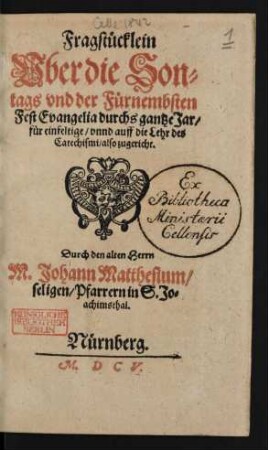 Celle 1842
1
Fragstücklein
Vber die Son-
tags vnd der Fürnembsten
Fest Evangelia durchs gantze Jar/
für einfeltige/vnnd auff die Lehr des
Catechismi/also zugericht.
Ex
Bibliotheca
Ministerii
Cellensis
Durch den alten Herrn
M. Johann Matthesium/
seligen/Pfarrern in S. Jo-
achimsthal.
KÖNIGLICHE
BIBLIOTHEK
BERLIN
Nürnberg.
M. DC V.